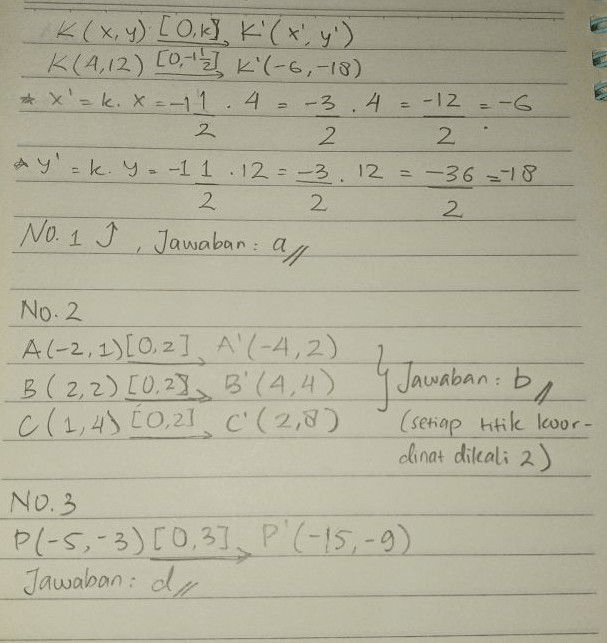 K(x,y) [0,k] K'(x',y')
K(4,12) [0,-1 1/2] K'(-6,-18)
* x' = k. x = -1 1/2 . 4 = -3/2 . 4 = -12/2 = -6
* y' = k. y = -1 1/2 . 12 = -3/2 . 12 = -36/2 = -18
No. 1 ↑ , Jawaban : a//
No. 2
A(-2,1) [0,2] A'(-4,2)
B(2,2) [0,2] B'(4,4) } Jawaban : b//
C(1,4) [0,2] C'(2,8) (setiap titik koor-
dinat dikali 2)
No. 3
P(-5,-3) [0,3] P'(-15,-9)
Jawaban : d//